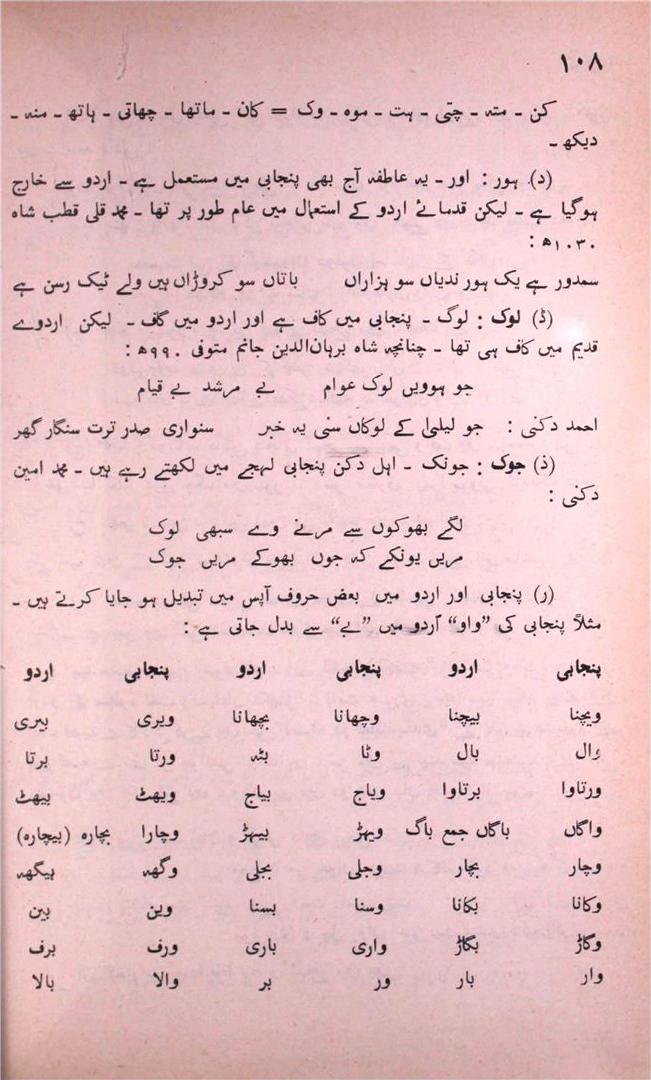 ۱۰۸
کن ۔ متہ ۔ چتی ۔ ہت ۔ موہ ۔ وک = کان ۔ ماتھا ۔ چھاتی ۔ ہاتھ ۔ منہ ۔
دیکھ ۔
(د) ہور : اور ۔ یہ عاطفہ آج بھی پنجابی میں مستعمل ہے ۔ اردو سے خارج
ہوگیا ہے ۔ لیکن قدمائے اردو کے استعمال میں عام طور پر تھا ۔ محمد قلی قطب شاہ
۱۰۳۰ھ :
سمدور ہے یک ہور ندیاں سو ہزاراں باتاں سو کروڑاں ہیں ولے ٹیک رسن ہے
(ڈ) لوک : لوگ ۔ پنجابی میں کاف ہے اور اردو میں گاف ۔ لیکن اردوے
قدیم میں کاف ہی تھا ۔ چنانچہ شاہ برہان‌الدین جانم متوفی ۹۹۰ھ :
جو ہوویں لوک عوام بے مرشد بے قیام
احمد دکنی : جو لیلیٰ کے لوکاں سنی یہ خبر سنواری صدر ترت سنگار گھر
(ذ) جوک : جونک ۔ اہل دکن پنجابی لہجے میں لکھتے رہے ہیں ۔ محمد امین
دکنی :
لگے بھوکوں سے مرنے وے سبھی لوک
مریں یونکے کہ جوں بھوکے مریں جوک
(ر) پنجابی اور اردو میں بعض حروف آپس میں تبدیل ہو جایا کرتے ہیں ۔
مثلاً پنجابی کی ”واو“ اردو میں ”بے“ سے بدل جاتی ہے :
پنجابی اردو پنجابی اردو پنجابی اردو
ویچنا بیچنا وچھانا بچھانا ویری بیری
وال بال وٹا بٹہ ورتا برتا
ورتاوا برتاوا ویاج بیاج ویھٹ بیھٹ
واگاں باگاں جمع باگ ویہڑ بیہڑ وچارا بچارہ (بیچارہ)
وچار بچار وجلی بجلی وگھہ بیگھہ
وکانا بکانا وسنا بسنا وین بین
وگاڑ بگاڑ واری باری ورف برف
وار بار ور بر والا بالا